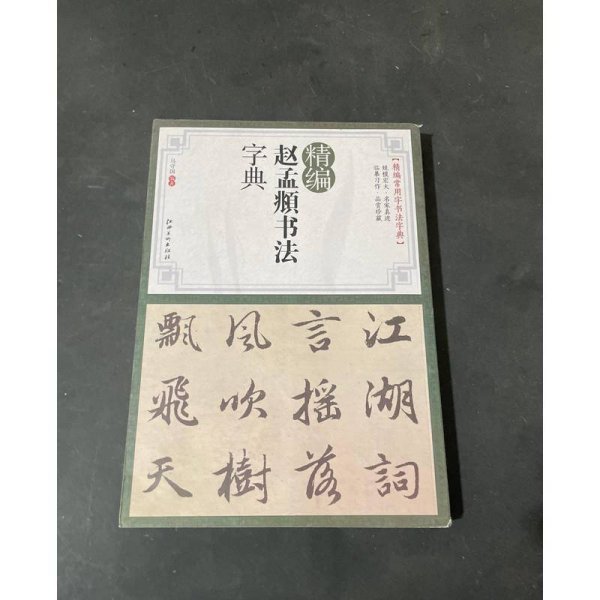 【精编常用字书法字典】
规模宏大·名家真迹
临摹习作·品赏珍藏
精编
赵孟頫书法
字典
江西美术出版社
江湖詞
言搖落
風吹樹
飄飛天